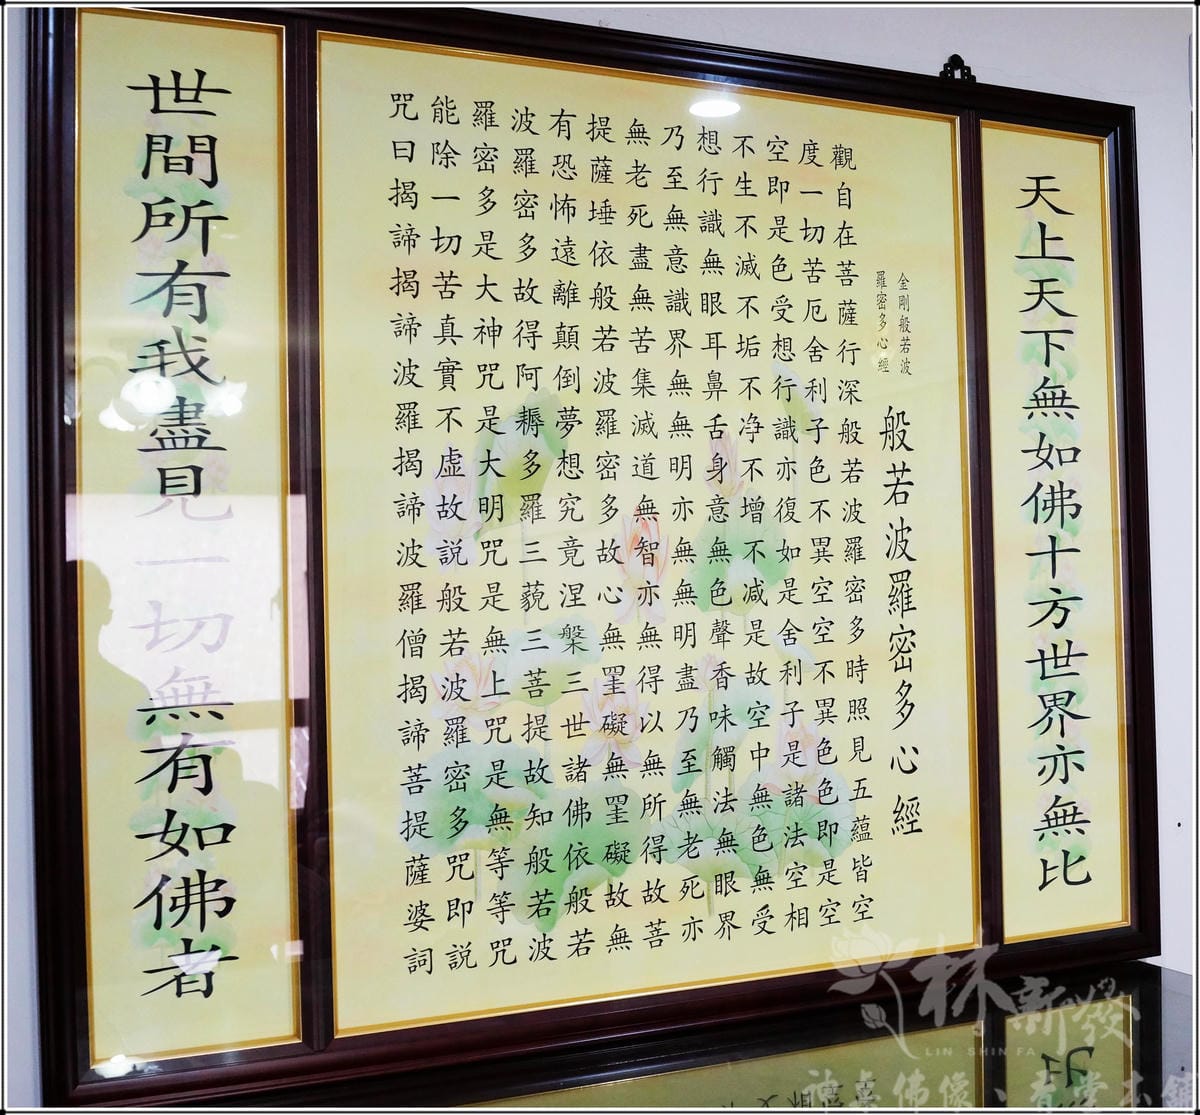 天上天下無如佛十方世界亦無比
金剛般若波
羅密多心經
般若波羅密多心經
觀自在菩薩行深般若波羅密多時照見五蘊皆空
度一切苦厄舍利子色不異空空不異色色即是空
空即是色受想行識亦復如是舍利子是諸法空相
不生不滅不垢不净不增不减是故空中無色無受
想行識無眼耳鼻舌身意無色聲香味觸法無眼界
乃至無意識界無無明亦無無明盡乃至無老死亦
無老死盡無苦集滅道無智亦無得以無所得故菩
提薩埵依般若波羅密多故心無罣礙無罣礙故無
有恐怖遠離顛倒夢想究竟涅槃三世諸佛依般若
波羅密多故得阿耨多羅三藐三菩提故知般若波
羅密多是大神咒是大明咒是無上咒是無等等咒
能除一切苦真實不虛故説般若波羅密多咒即説
咒曰揭諦揭諦波羅揭諦波羅僧揭諦菩提薩婆詞
世間所有我盡見一切無有如佛者
林新發
LIN SHIN FA
神桌佛像、